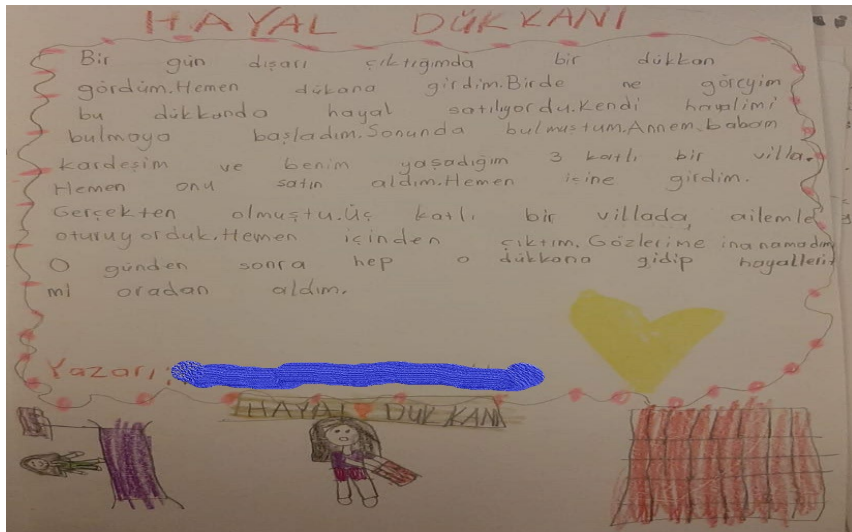 HAYAL DÜKKANI
Bir gün dışarı çıktığımda bir dükkan
gördüm.Hemen dükana girdim.Birde ne göreyim
bu dükkanda hayal satılıyordu.Kendi hayalimi
bulmaya başladım.Sonunda bulmuştum.Annem,babam
kardeşim ve benim yaşadığım 3 katlı bir villa.
Hemen onu satın aldım.Hemen içine girdim.
Gerçekten olmuştu.Üç katlı bir villada ailemle
oturuyorduk.Hemen içinden çıktım.Gözlerime inanamadım
O günden sonra hep o dükkana gidip hayalleri-
mi oradan aldım.
Yazarı:
HAYAL DÜKKANI